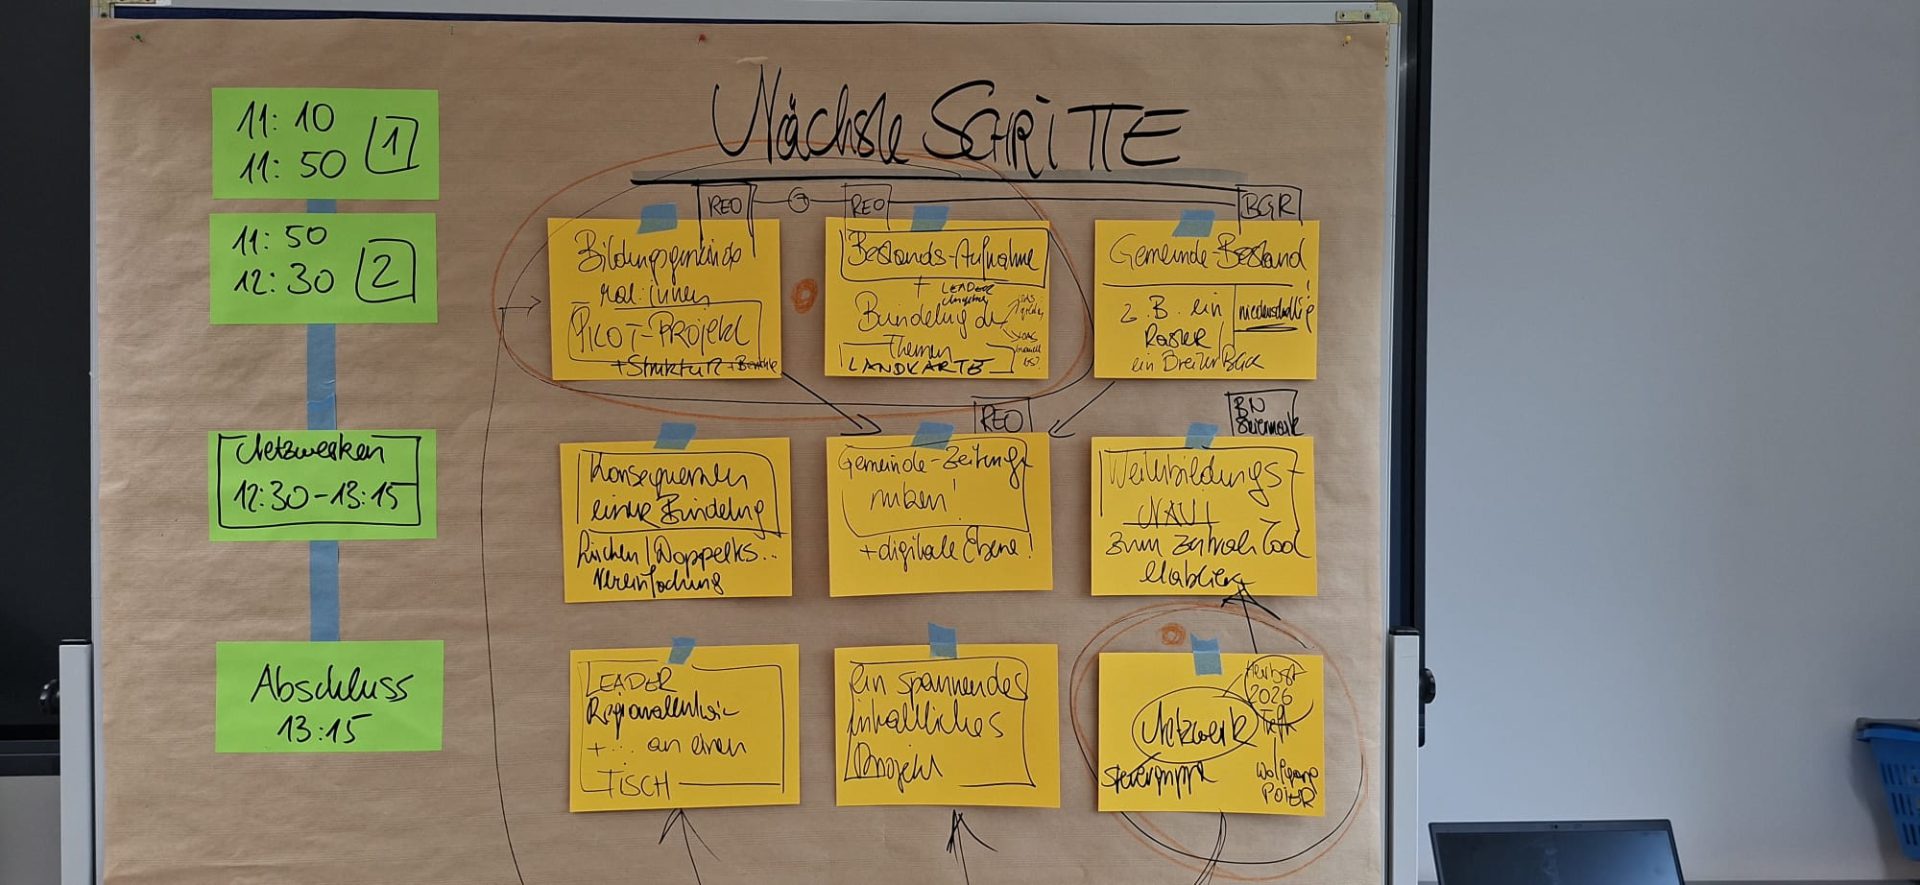 11:10
11:50
1
11:50
12:30
2
Netzwerken
12:30-13:15
Abschluss
13:15
Nächste SCHRITTE
REO
REO
BGR
Bildungsgemeinde
rat:innen
PILOT-PROJEKT
+Struktur +
Bestands-Aufnahme
+ LEADER
Bündelung der
Themen
LANDKARTE
Gemeinde-Bestand
z.B. ein
Raster
ein Breiter Blick
niederschwellig
!
Konsequenzen
einer Bündelung
Lücken/Doppelks..
Vereinfachung
REO
Gemeinde-Zeitung
nutzen!
+digitale Ebene!
BN
Steiermark
Weiterbildungs-
NAVI
zum zentralen Tool
etablieren
LEADER
Regionalentwic-
+... an einen
TISCH
ein spannendes
inhaltliches
Projekt
Herbst
2026
Netzwerk
Steuergruppe
Wolfgang
POIER